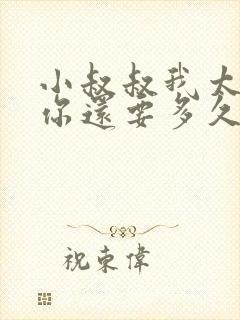 小叔叔我太
你還要多久
祝東偉